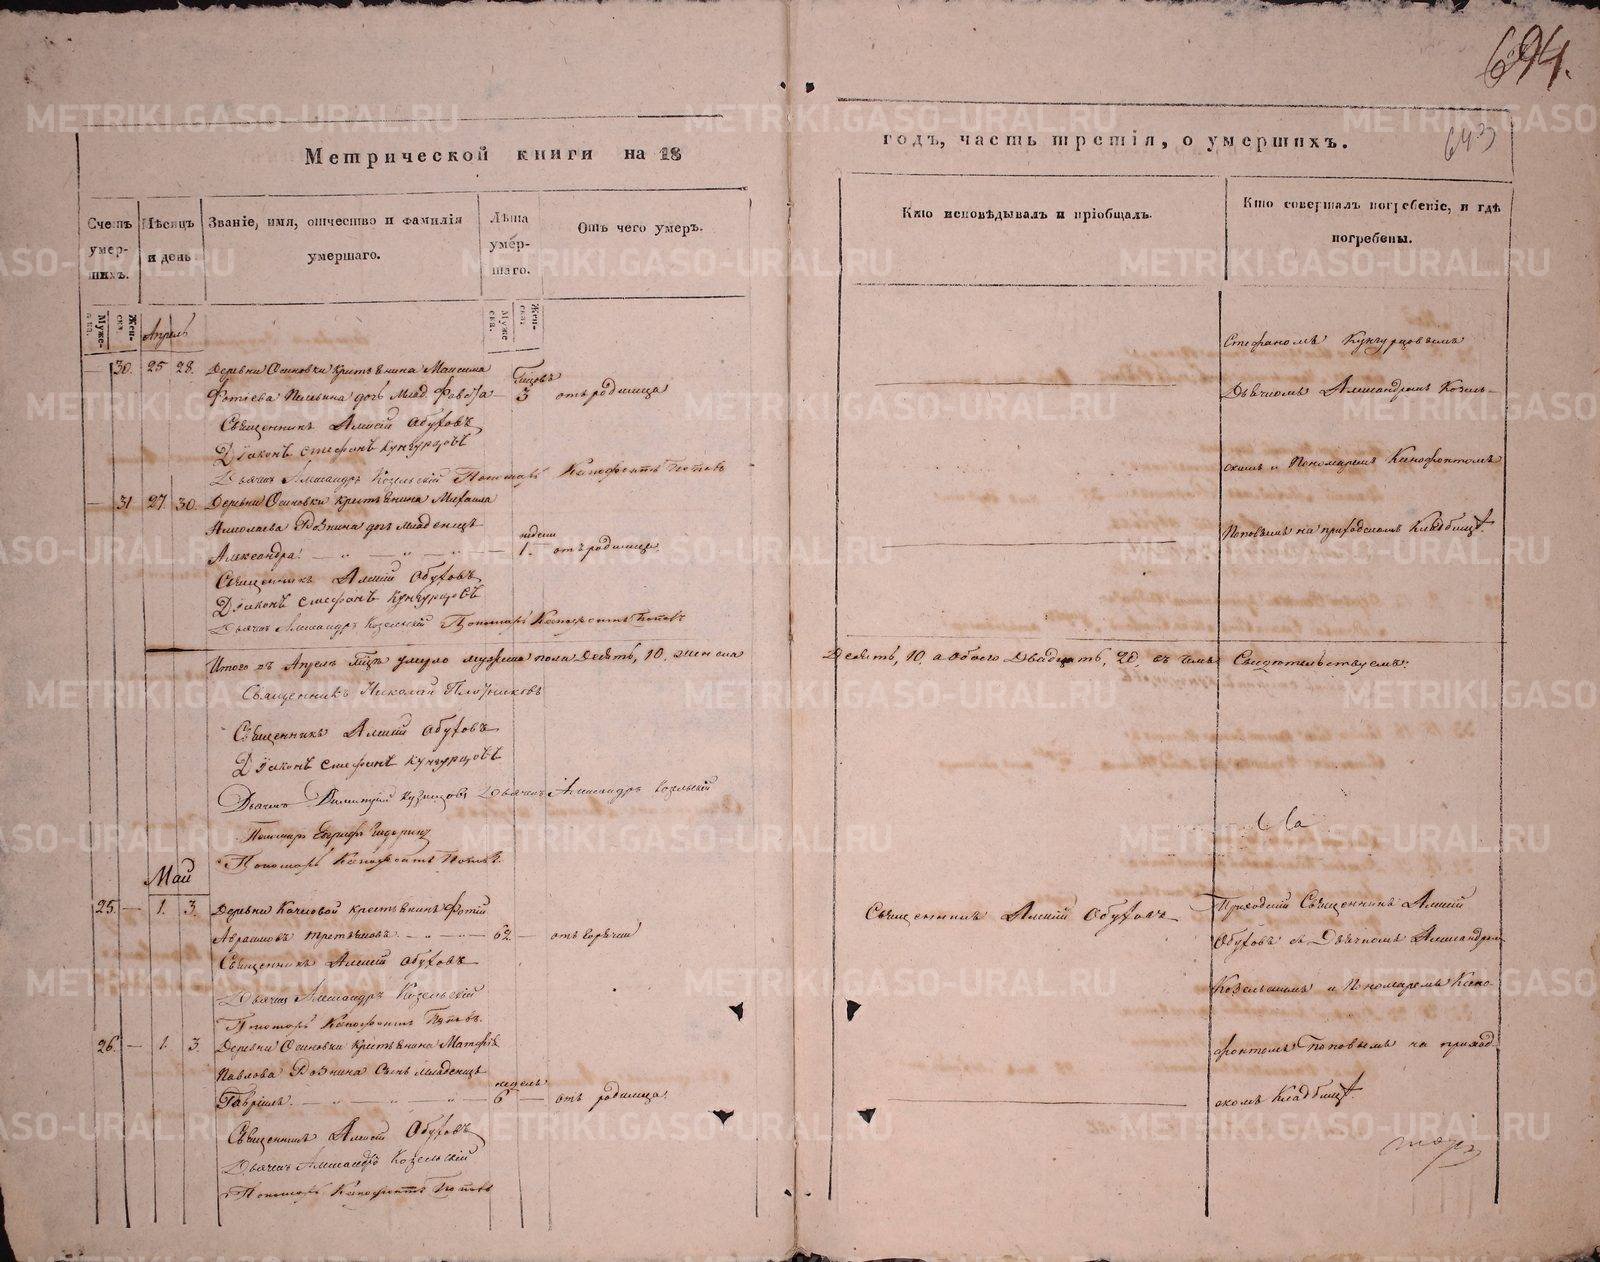 694.
643
Метрической книги на 18
годъ, часть третія, о умершихъ.
Счетъ умер-шихъ.
Мѣсяцъ и день
Званіе, имя, отчество и фамилія умершаго.
Лѣта умер-шаго.
Отъ чего умеръ.
Кто исповѣдывалъ и пріобщалъ.
Кто совершалъ погребеніе, и гдѣ погребены.
Муже-ска.
Жен-ска.
Муже ска.
Жен-ска.
Апрѣль
30. 25 28. Деревни Осиновки крестьянина Максима
дочь Млад. 3 отъ родимца
Священникъ Алексій Обуховъ
Діаконъ Стефанъ Кунгурцовъ
Дьячекъ Александръ Козельскій Пономарь Ксенофонтъ Поповъ
31 27. 30. Деревни Осиновки крестьянина Михаила
дочь младенецъ
недели
Александра. 1. отъ родимца.
Священникъ Алексій Обуховъ
Діаконъ Стефанъ Кунгурцовъ
Дьячекъ Александръ Козельскій Пономарь Ксенофонтъ Поповъ
Стефаномъ Кунгурцовымъ
Дьячкомъ Александромъ Козель-
скимъ и Пономаремъ Ксенофонтомъ
Поповымъ на приходскомъ кладбищѣ.
Итого въ Апрелѣ умерло мужеска пола Десять, 10. женска Десять, 10, а обоего Двадцать, 20, въ чемъ Свидетельствуемъ:
Священникъ Николай Плотниковъ
Священникъ Алексій Обуховъ
Діаконъ Стефанъ Кунгурцовъ
Дьячекъ Димитрій Кузнецовъ Дьячекъ Александръ Козельскій
Пономарь
Пономарь Ксенофонтъ Поповъ.
Май
25. 1. 3. Деревни крестьянинъ Фотій
Авраамовъ Третьяковъ. 62. отъ горячки
Священникъ Алексій Обуховъ
Дьячекъ Александръ Козельскій
Пономарь Ксенофонтъ Поповъ.
Священникъ Алексій Обуховъ
Приходскій Священникъ Алексій
Обуховъ съ Дьячкомъ Александромъ
Козельскимъ и Пономаремъ Ксено-
фонтомъ Поповымъ на приход-
скомъ кладбищѣ.
26. 1. 3. Деревни Осиновки крестьянина Матфѣя
Павлова сынъ младенецъ
недель
Гавріилъ. 6 отъ родимца.
Священникъ Алексій Обуховъ
Дьячекъ Александръ Козельскій
Пономарь Ксенофонтъ Поповъ
METRIKI.GASO-URAL.RU